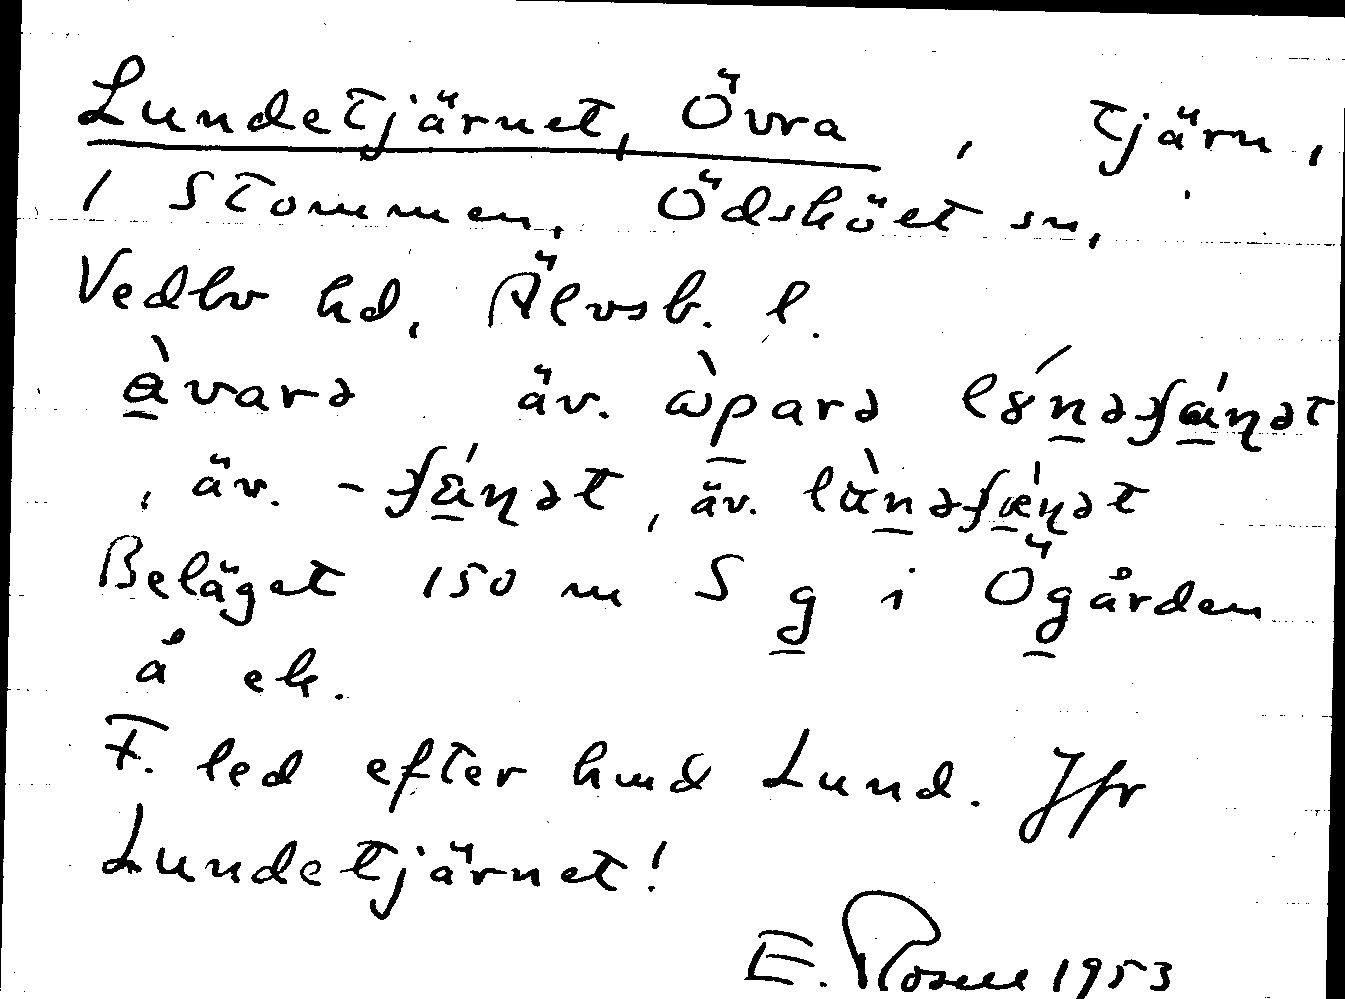 Lundetjärnet, Övra, tjärn,
i Stommen, Ödsköet sn,
Vedbo hd, Älvsb. l.
àvarə äv. ὼparə
, äv.
Beläget 150 m S g i Ögården
å ek.
F. led efter hmd Lund. Jfr
Lundetjärnet!
E. Rosell 1953